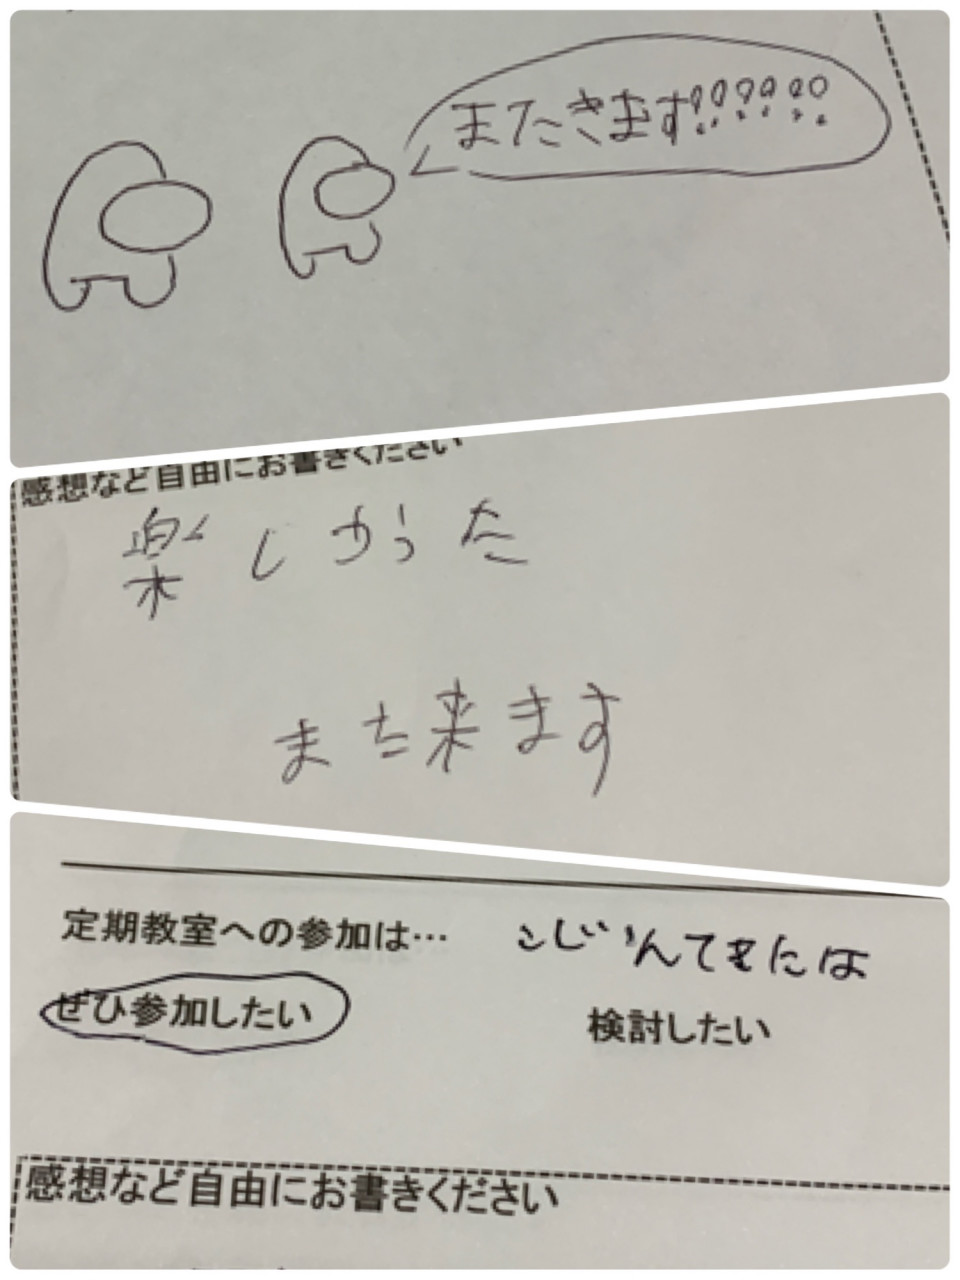 またきます!!!!!!
感想など自由にお書きください
楽しかった
また来ます
定期教室への参加は…
こじんてきには
ぜひ参加したい
検討したい
感想など自由にお書きください